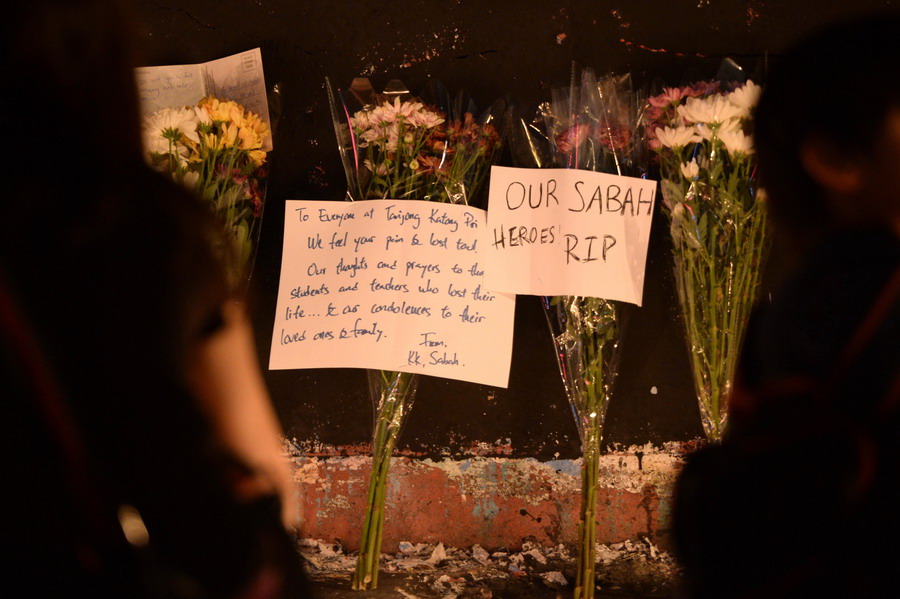 To Everyone at Tanjong Katong Pri
We feel your pain & lost too!
Our thoughts and prayers to the
students and teachers who lost their
life... & our condolences to their
loved ones & family.
From,
KK, Sabah.
OUR SABAH
HEROES
RIP